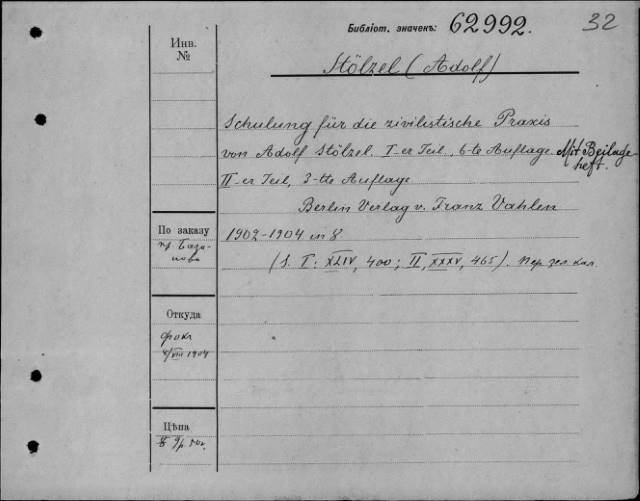 Библіот. значекъ: 62992.
32
Инв.
№
Stölzel (Adolf)
Schulung für die zivilistische Praxis
von Adolf Stölzel. I-er Teil, 6-te Auflage. Mit 1 Beilage
heft.
II-er Teil, 3-tte Auflage
Berlin Verlag v. Franz Vahlen
По заказу
пр. База-
нова
1902-1904 in 8
(S. I: XLIV, 400; II, XXXV, 465). Пер. зел. кал.
Откуда
Фокъ
4/VIII 1904
Цѣна